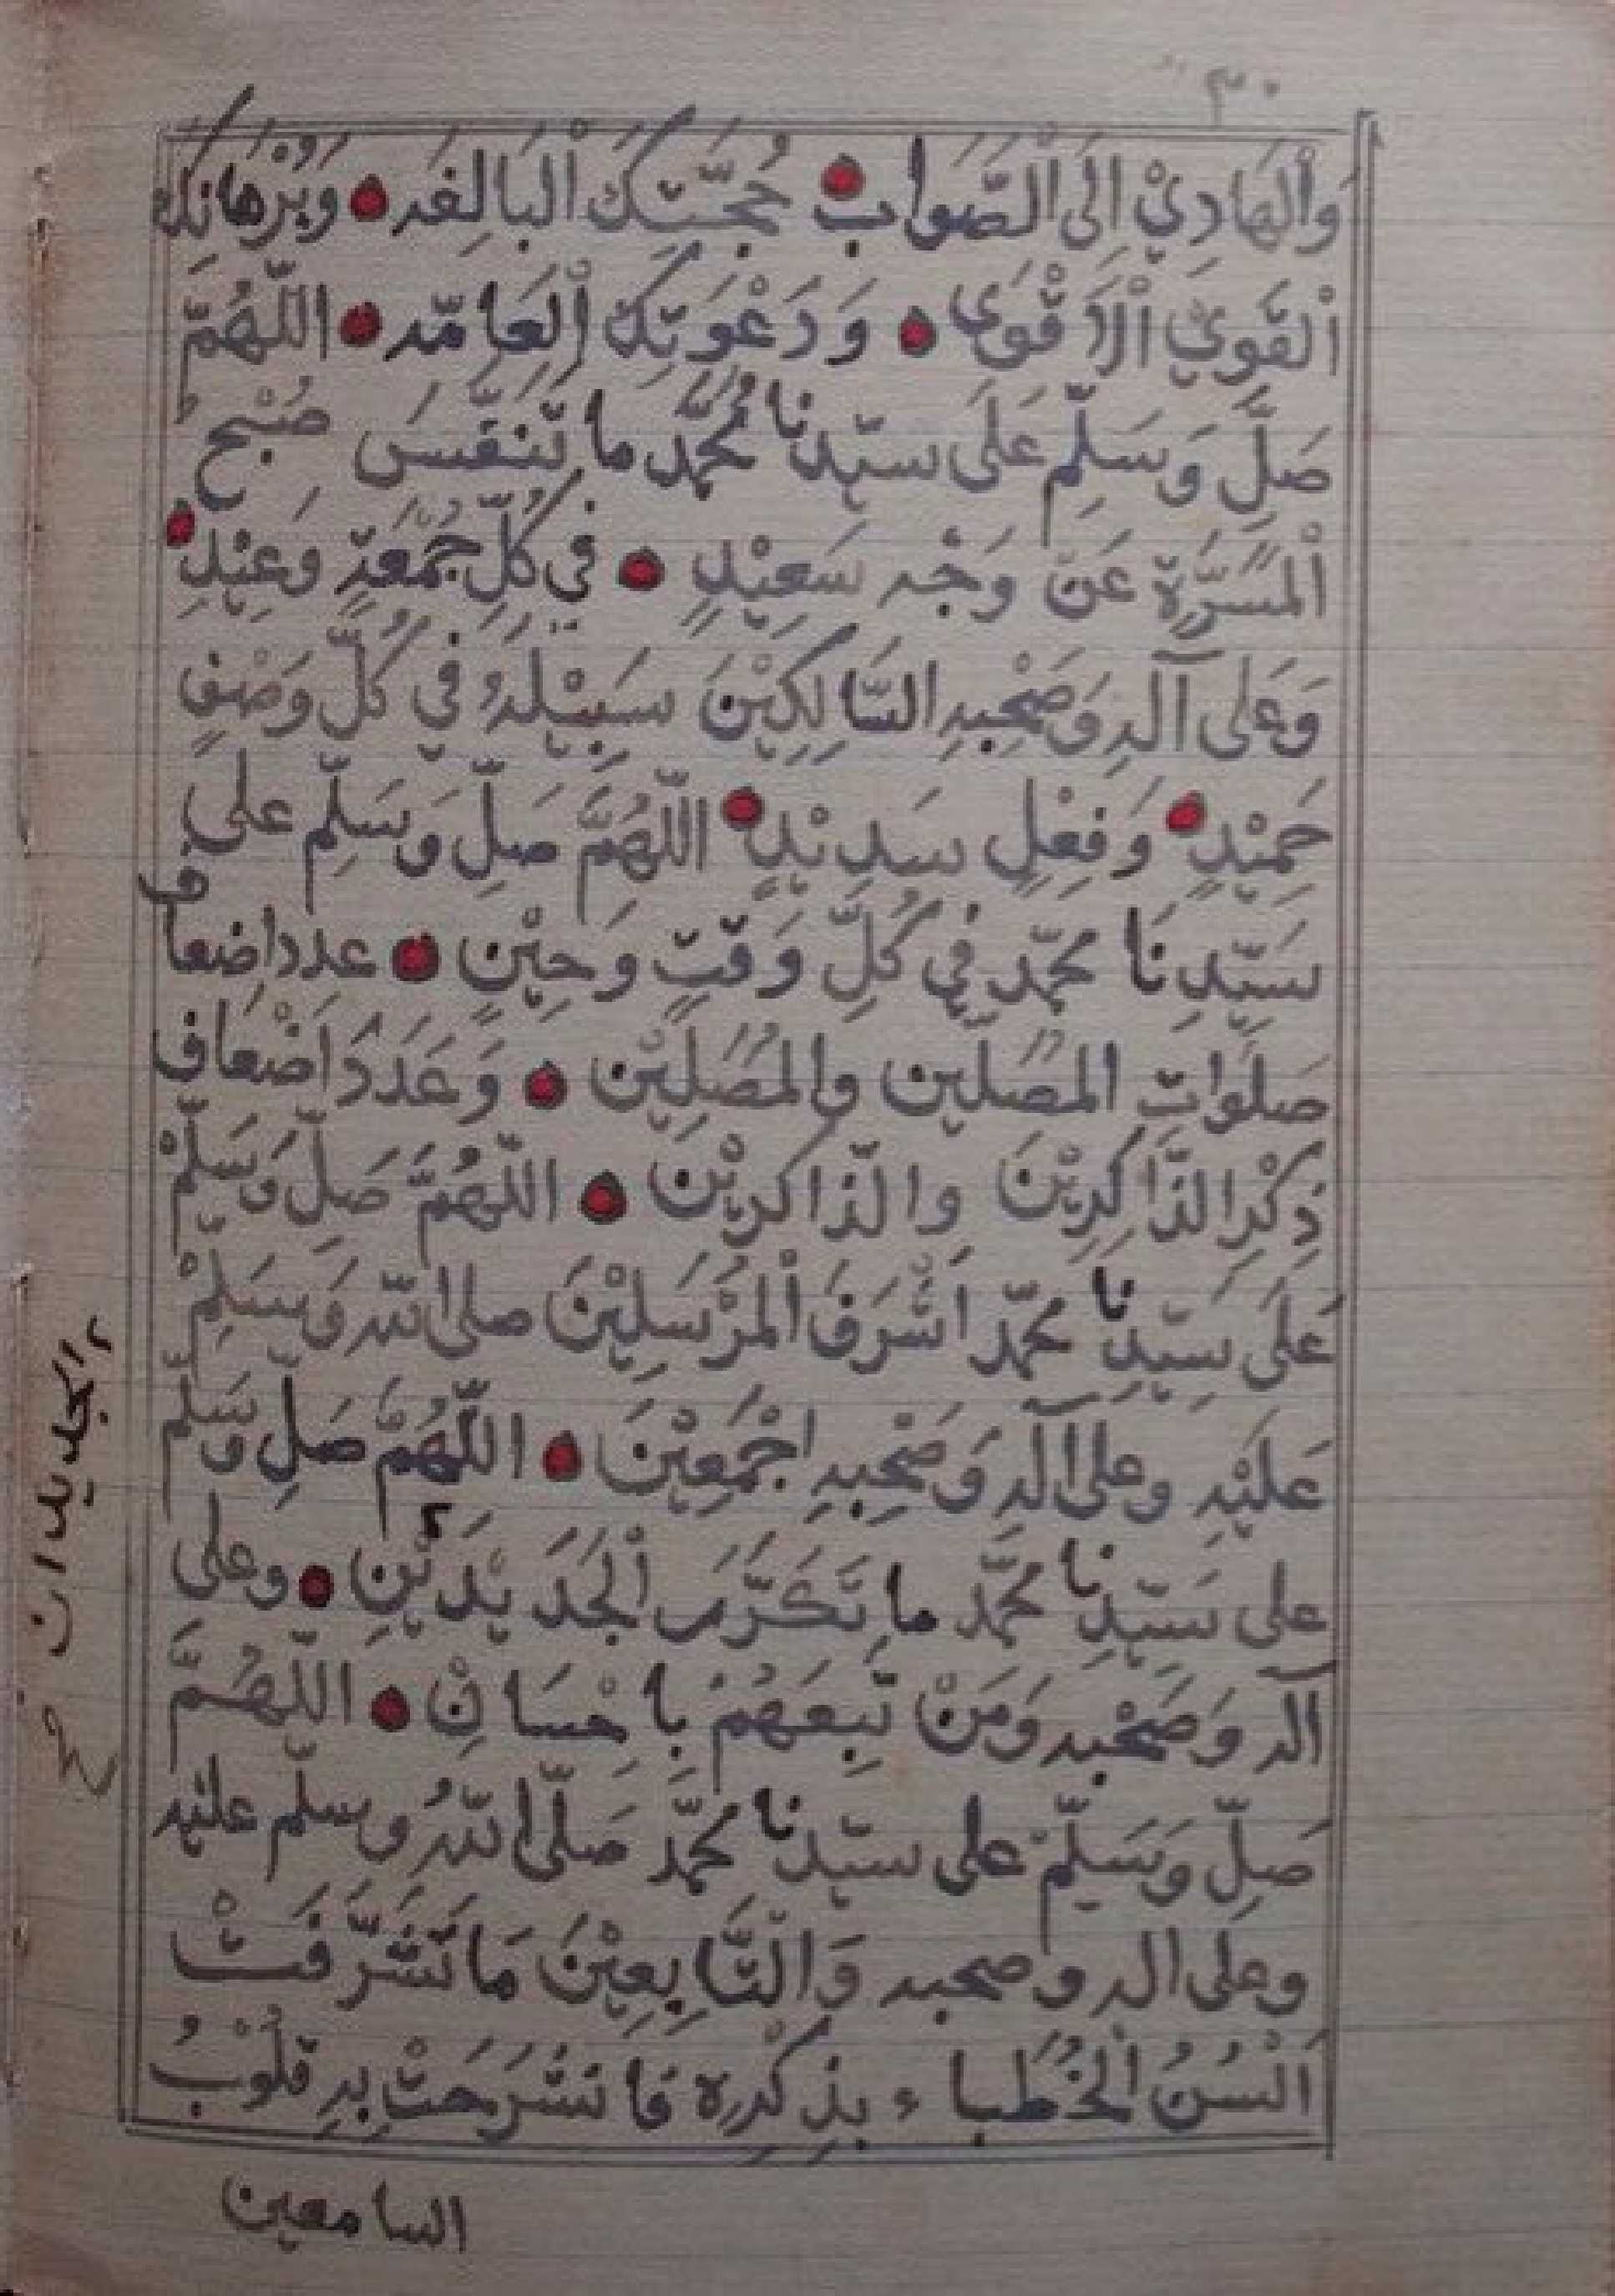 ٣٠
وَالْهَادِيْ اِلَى الْصَّوَابِ حُجَّتِكَ الْبَالِغَه وَبُرْهَانِكَ
الْقَوِيِّ الْاَقْوَى وَدَعْوَتِكَ الْعَامَّه اللّهُمَّ
صَلِّ وَسَلِّم عَلَى سيّدِنَا مُحَمَّد ما تَنَفَّسَ صُبْحُ
الْمَسَرَّةِ عَنْ وَجْهٍ سَعِيْدٍ في كُلِّ جُمْعَةٍ وَعِيْدٍ
وَعَلى آلِهِ وَصَحْبِهِ السَّالِكِيْنَ سَبِيْلَهُ فِي كُلِّ وَصْفٍ
حَمِيْدٍ وَفِعْلٍ سَدِيْدٍ اللّهُمَّ صَلِّ وَسَلِّم على
سَيّدِنَا محمّد فِي كُلِّ وَقتٍ وَحِيْنٍ عدد اضعاف
صلَوَاتِ المصُلّين والمصُلِيْن وَعَدَدَ اَضْعَاف
ذِكْرِ الذَّاكِرِيْنَ والذّاكرِيْن اللّهُمَّ صَلِّ وَسَلِّمْ
عَلَى سَيّدِنا محمّد اَشْرَفَ الْمُرْسَلِيْنَ صلى اللّه وَسَلِمْ
عَليْهِ وعلى آلهِ وَصَحْبِهِ اجْمَعِيْنَ اللّهُمَّ صَلِ وسَلِّم
على سَيّدِنا محمّد ما تَكَرَّرَ الْجَدَيْدَيْنِ وعلى
آله وَصَحْبه وَمَنْ تَبِعَهُمْ بِاحْسَانٍ اللّهُمَّ
صَلِّ وَسَلِّمْ على سيّدنا محمّد صَلّى اللّهُ وسلّم عليْه
وعَلى اله وصحبه وَالتَّابِعِيْنَ مَا تَشَرَّفَتْ
اَلْسُنُ الْخُطَباء بِذِكْرِهِ فانشَرَحَتْ بِهِ قلُوْبُ
السامعين
الجديدان